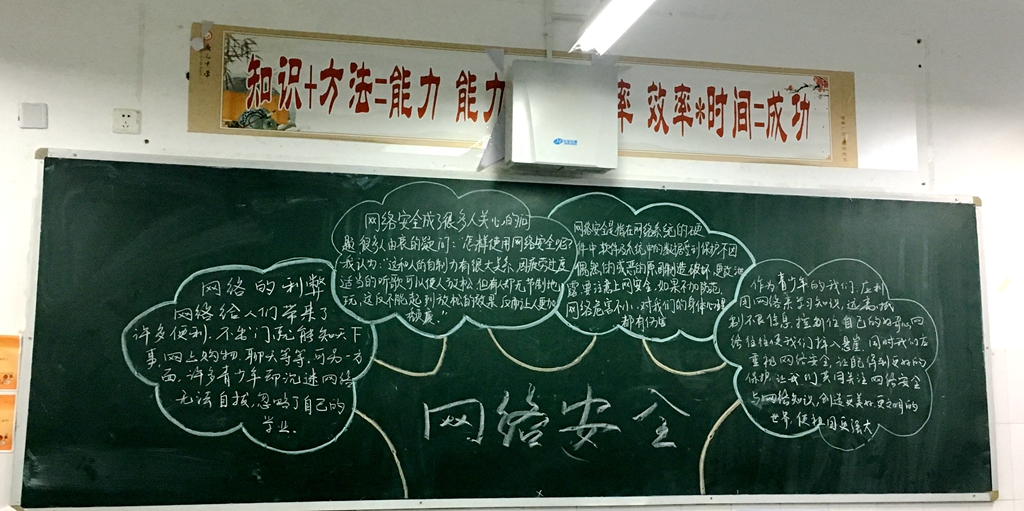 知识+方法=能力 能力
率 效率*时间=成功
网络的利弊
网络给人们带来了
许多便利,不出门就能知天下
事,网上购物,聊天等等,可另一方
面,许多青少年却沉迷网络
无法自拔,忽略了自己的
学业.
网络安全成了很多人关心的问
题 很多人由衷的疑问:怎样使用网络安全呢?
我认为:"这和人的自制力有很大关系,因疲劳过度
适当的听歌可以使人放松 但有人却无节制地
玩,这反不能起到放松的效果 反而让人更加
疲惫."
网络安全是指在网络系统的硬
件中 软件及系统中的数据受到保护 不因
偶然的或恶的原因制造 破坏 更改 泄
露 要注意上网安全,如果不加防范,
网络危害不小,对我们的身体心理
都有伤害
作为青少年的我们,应利
用网络来学习知识,远离,抵
制不良信息,控制住自己的好奇心,网
络往往使我们掉入悬崖,同时我们应
重视网络安全,让它得到更好的
保护,让我们共同关注网络安全
与网络知识,创造更美好更文明的
世界,使祖国更强大
网络安全